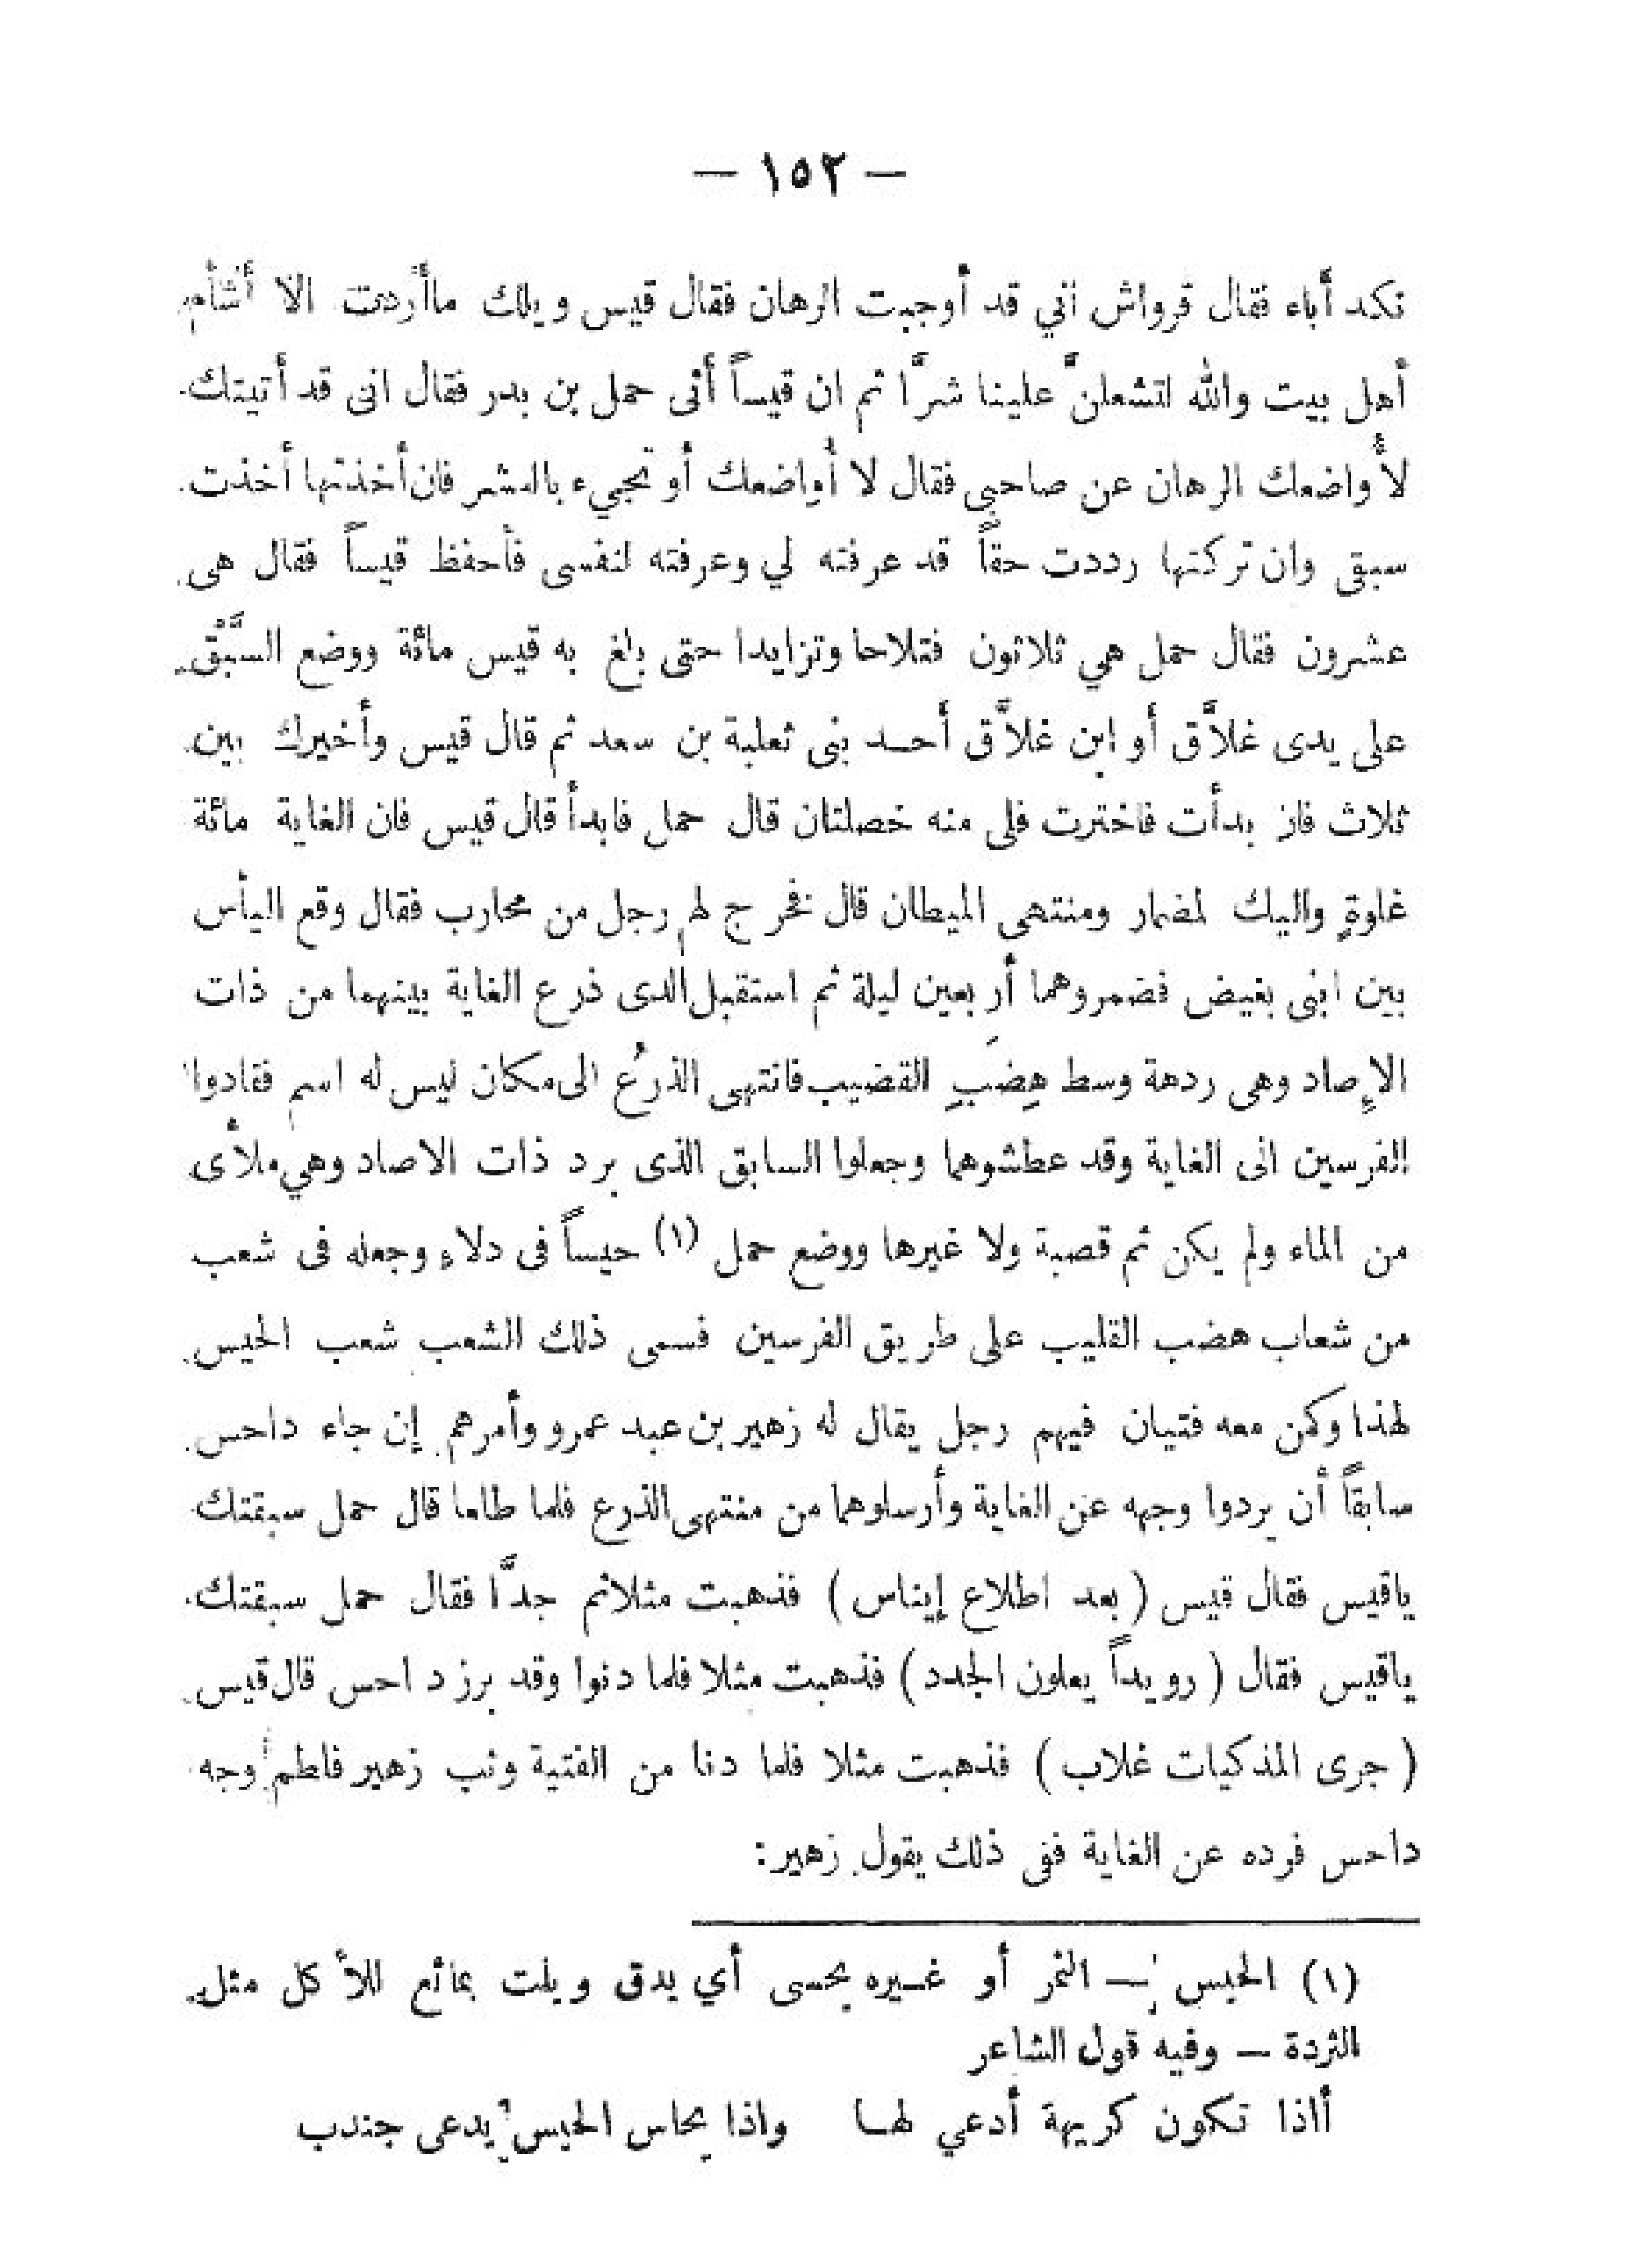 — ١٥٢ —
نكد أباء فقال قرواش اني قد أوجبت الرهان فقال قيس ويلك ماأردت الا أشأم
أهل بيت والله لتشعلنَّ علينا شرًّا ثم ان قيساً أتى حمل بن بدر فقال انى قد أتيتك
لأُواضعك الرهان عن صاحبى فقال لا أُواضعك أو تجيء بالعشر فان أخذتها أخذت
سبقى وان تركتها رددت حقاً قد عرفته لي وعرفته لنفسى فأحفظ قيساً فقال هى
عشرون فقال حمل هي ثلاثون فتلاحا وتزايدا حتى بلغ به قيس مائة ووضع السَّبْق
على يدى غلاَّق أو ابن غلاَّق أحد بنى ثعلبة بن سعد ثم قال قيس وأخيرك بين
ثلاث فان بدأت فاخترت فلى منه خصلتان قال حمل فابدأ قال قيس فان الغاية مائة
غلوةٍ واليك لمضمار ومنتهى الميطان قال فخرج لهم رجل من محارب فقال وقع اليأس
بين ابنى بغيض فضمروهما أربعين ليلة ثم استقبل الذى ذرع الغاية بينهما من ذات
الإِصاد وهى ردهة وسط هِضَبِ القضيب فانتهى الذرُع الى مكان ليس له اسم فقادوا
الفرسين الى الغاية وقد عطشوهما وجعلوا السابق الذى يرد ذات الاصاد وهي ملأى
من الماء ولم يكن ثم قصبة ولا غيرها ووضع حمل (١) حيساً فى دلاء وجعله فى شعب
من شعاب هضب القليب على طريق الفرسين فسمى ذلك الشعب شعب الحيس
لهذا وكمن معه فتيان فيهم رجل يقال له زهير بن عبد عمرو وأمرهم إن جاء داحس
سابقاً أن يردوا وجهه عن الغاية وأرسلوهما من منتهى الذرع فلما طلعا قال حمل سبقتك
ياقيس فقال قيس ( بعد اطلاع إيناس ) فذهبت مثلاثم جدَّا فقال حمل سبقتك
ياقيس فقال ( رويداً يعلون الجدد ) فذهبت مثلا فلما دنوا وقد برز داحس قال قيس
( جرى المذكيات غلاب ) فذهبت مثلا فلما دنا من الفتية وثب زهير فلطم وجه
داحس فرده عن الغاية ففى ذلك يقول زهير:
(١) الحيس — التمر أو غيره يحسى أي يدق ويلت بمائع للأكل مثل
الثردة — وفيه قول الشاعر
أاذا تكون كريهة أدعي لها واذا يحاس الحيس يدعى جندب